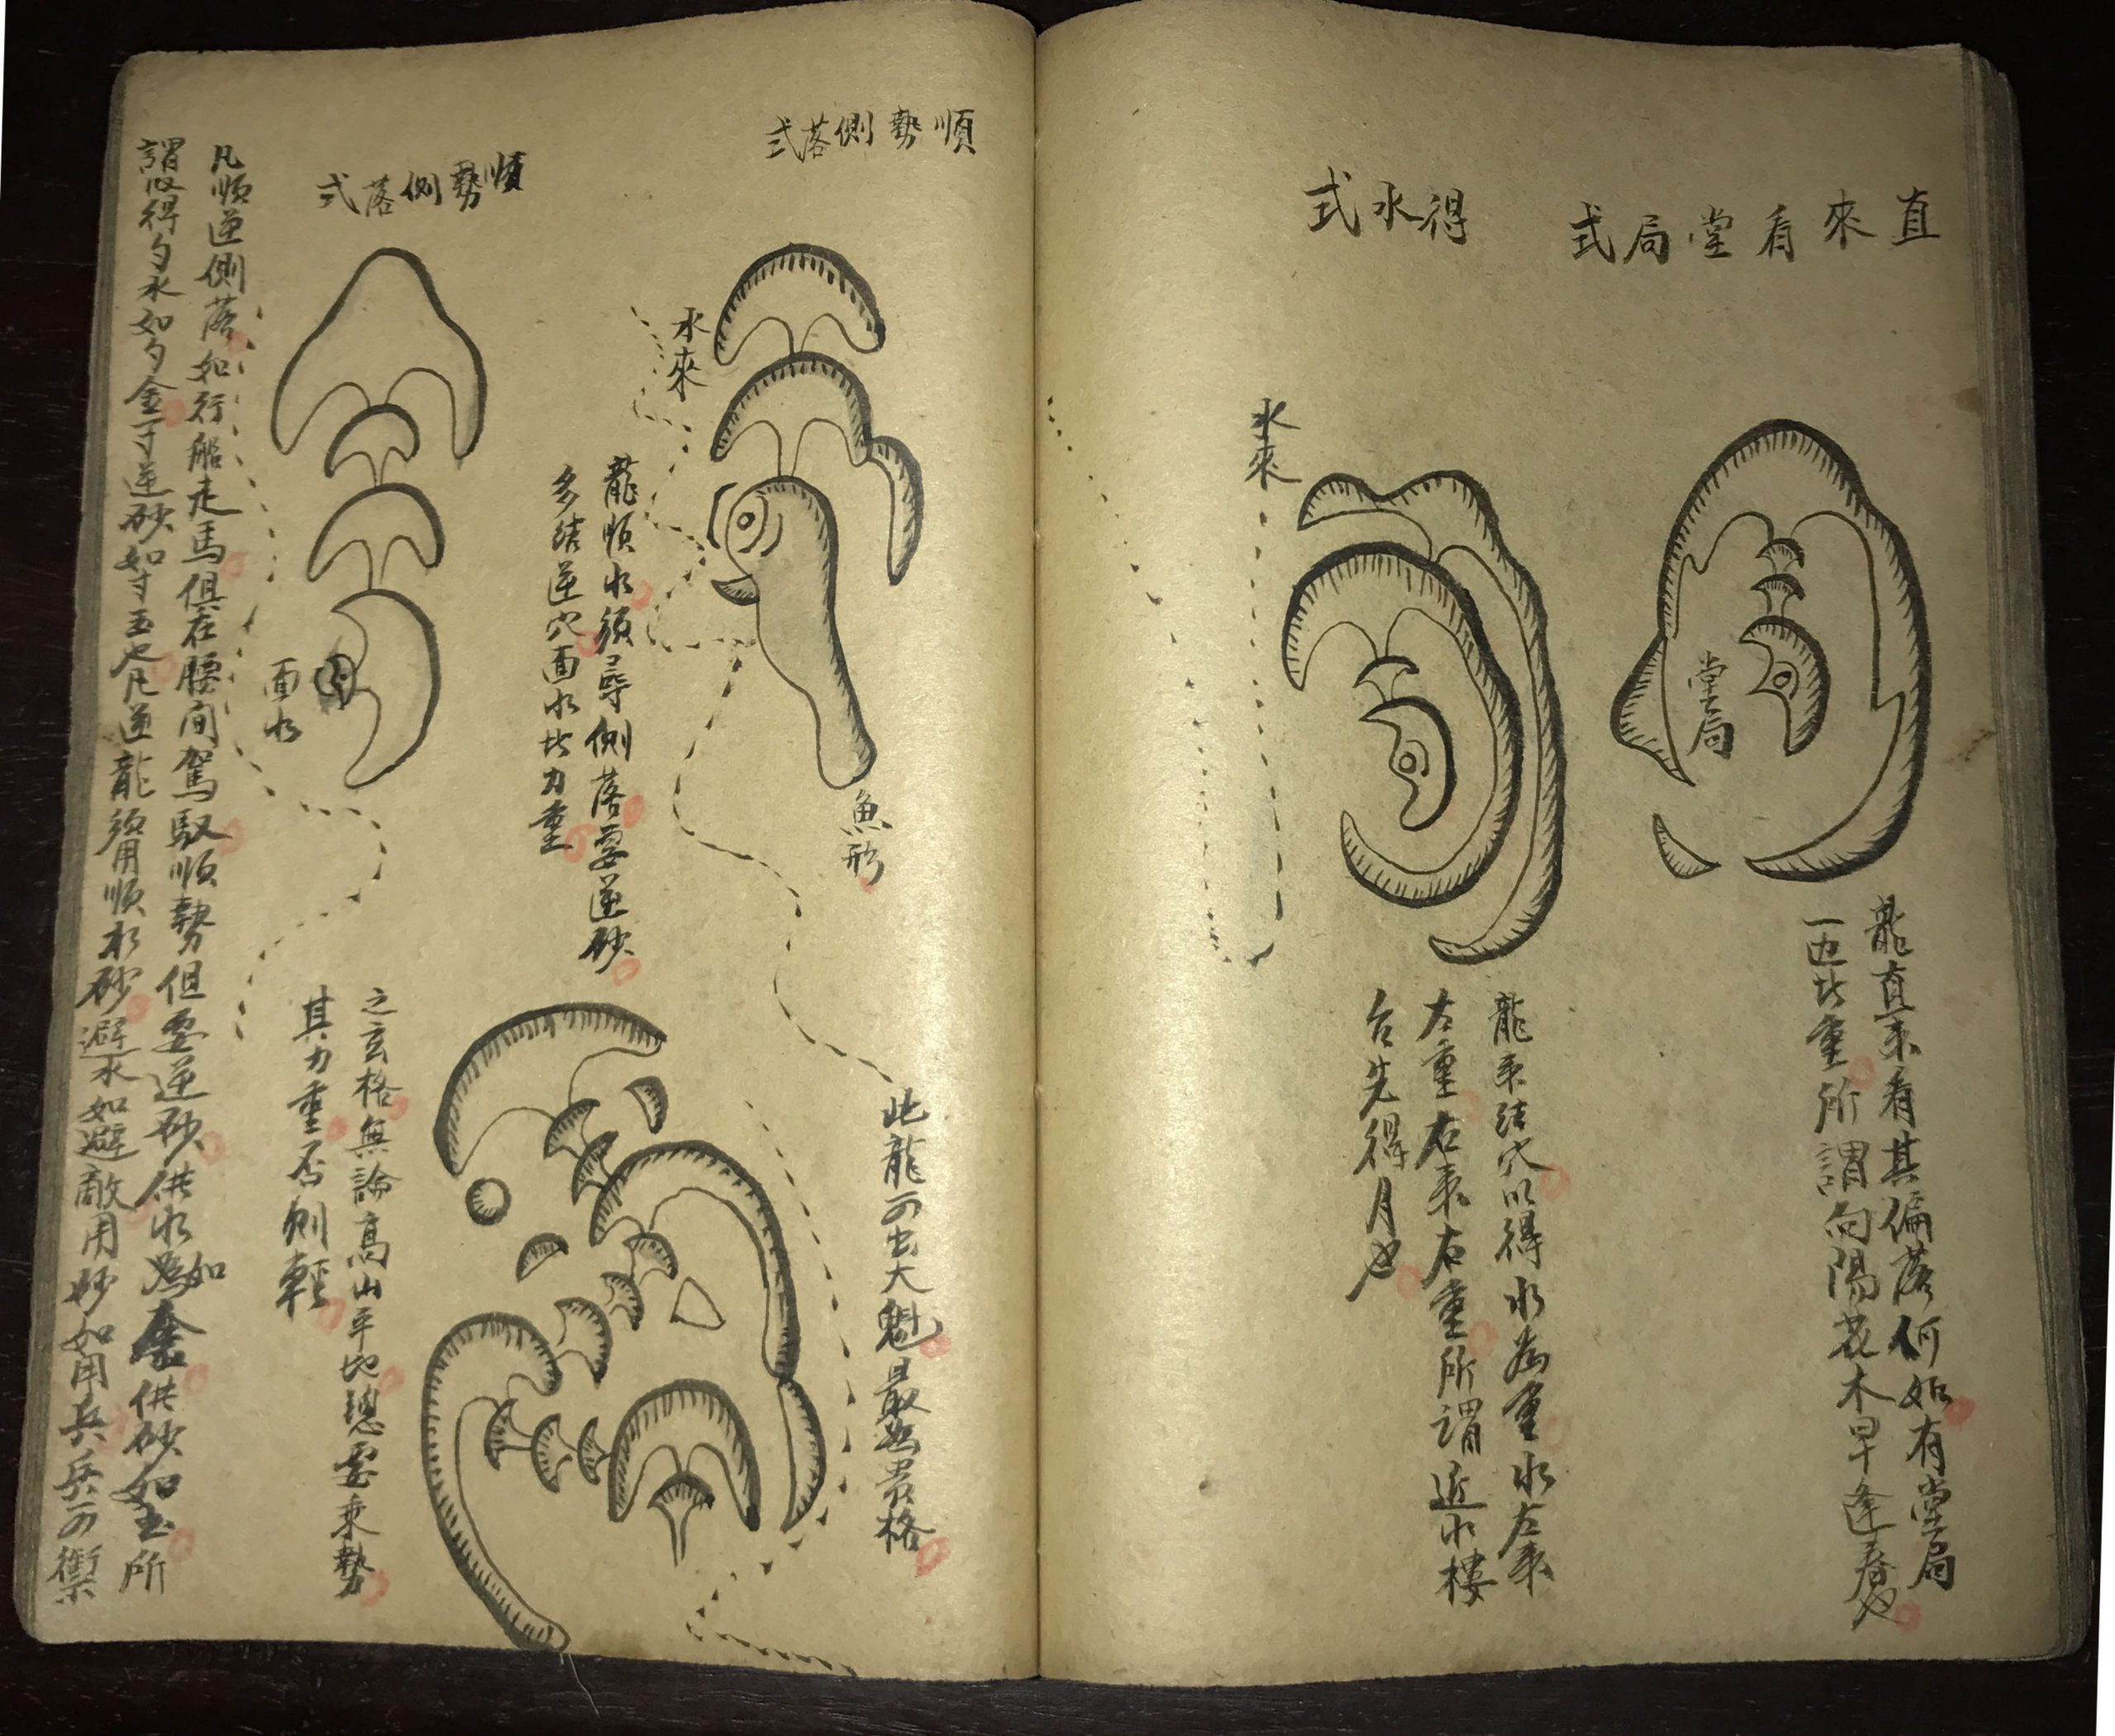 直來看堂局式
堂局
龍直來看其偏落何如有堂局
一边此重所謂向陽花木早逢春也
得水式
水來
龍來結穴以得水為重水左來
左重右來右重所謂近水樓
台先得月也
順勢側落式
水來
魚形
龍順水須尋側落要逆砂
多結逆穴面水此力重
此龍可出大魁最為異格
順勢側落式
面水
之玄格無論高山平地總要乘勢
其力重否則輕
凡順逆側落如行船走馬俱在腰间駕馭順勢但要逆砂供水為如奎供砂如玉所
謂收得勺水如勺金一寸逆砂如寸玉也凡逆龍須用順水砂避水如避敵用妙如用兵兵可禦